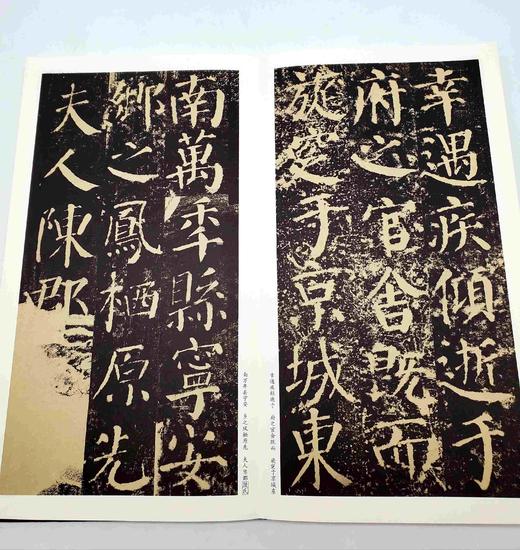 幸遇疾傾逝于
府之官舍既而
旋窆于京城東
幸遇疾倾逝于 府之官舍既而 旋窆于京城东
南萬年縣寧安
鄉之鳳栖原先
夫人陳郡
南万年县宁安 乡之凤栖原先 夫人陈郡殷氏